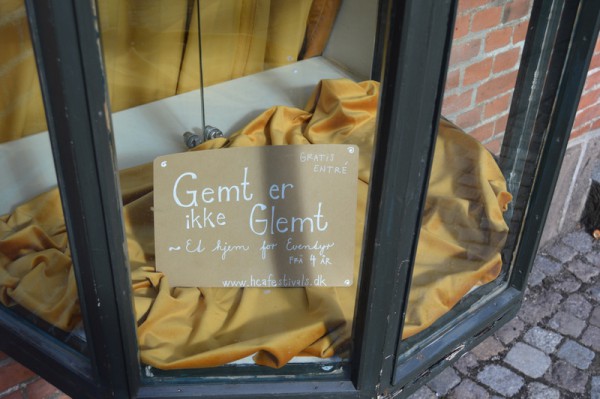 GRATIS
ENTRÉ
Gemt er
ikke Glemt
~ Et hjem for Eventyr
FRA 4 ÅR
www.hcafestivals.dk